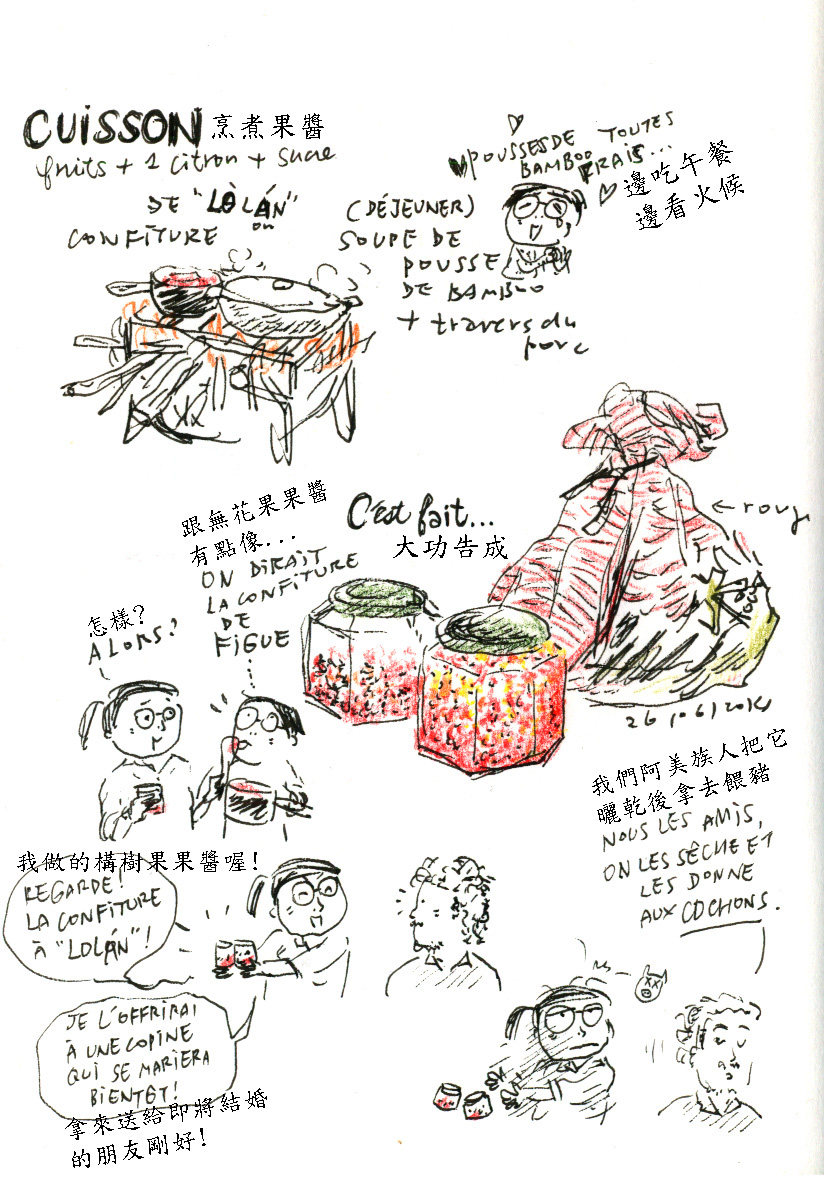 CUISSON 烹煮果醬
fruits + 1 citron + sucre
DE "LOLÁN"
CONFITURE
(DÉJEUNER)
SOUPE DE
POUSSE
DE BAMBOO
+ travers du
porc
POUSSES DE
BAMBOO TOUTES
FRAIS...
邊吃午餐
邊看火候
C'est fait...
大功告成
← rouge
跟無花果果醬
有點像...
ON DIRAIT
LA CONFITURE
DE
FIGUE
怎樣?
ALORS?
我做的構樹果果醬喔!
REGARDE!
LA CONFITURE
À "LOLÁN"!
JE L'OFFRIRAI
À UNE COPINE
QUI SE MARIERA
BIENTÔT!
拿來送給即將結婚
的朋友剛好!
我們阿美族人把它
曬乾後拿去餵豬
NOUS LES AMIS,
ON LES SÈCHE ET
LES DONNE
AUX COCHONS.